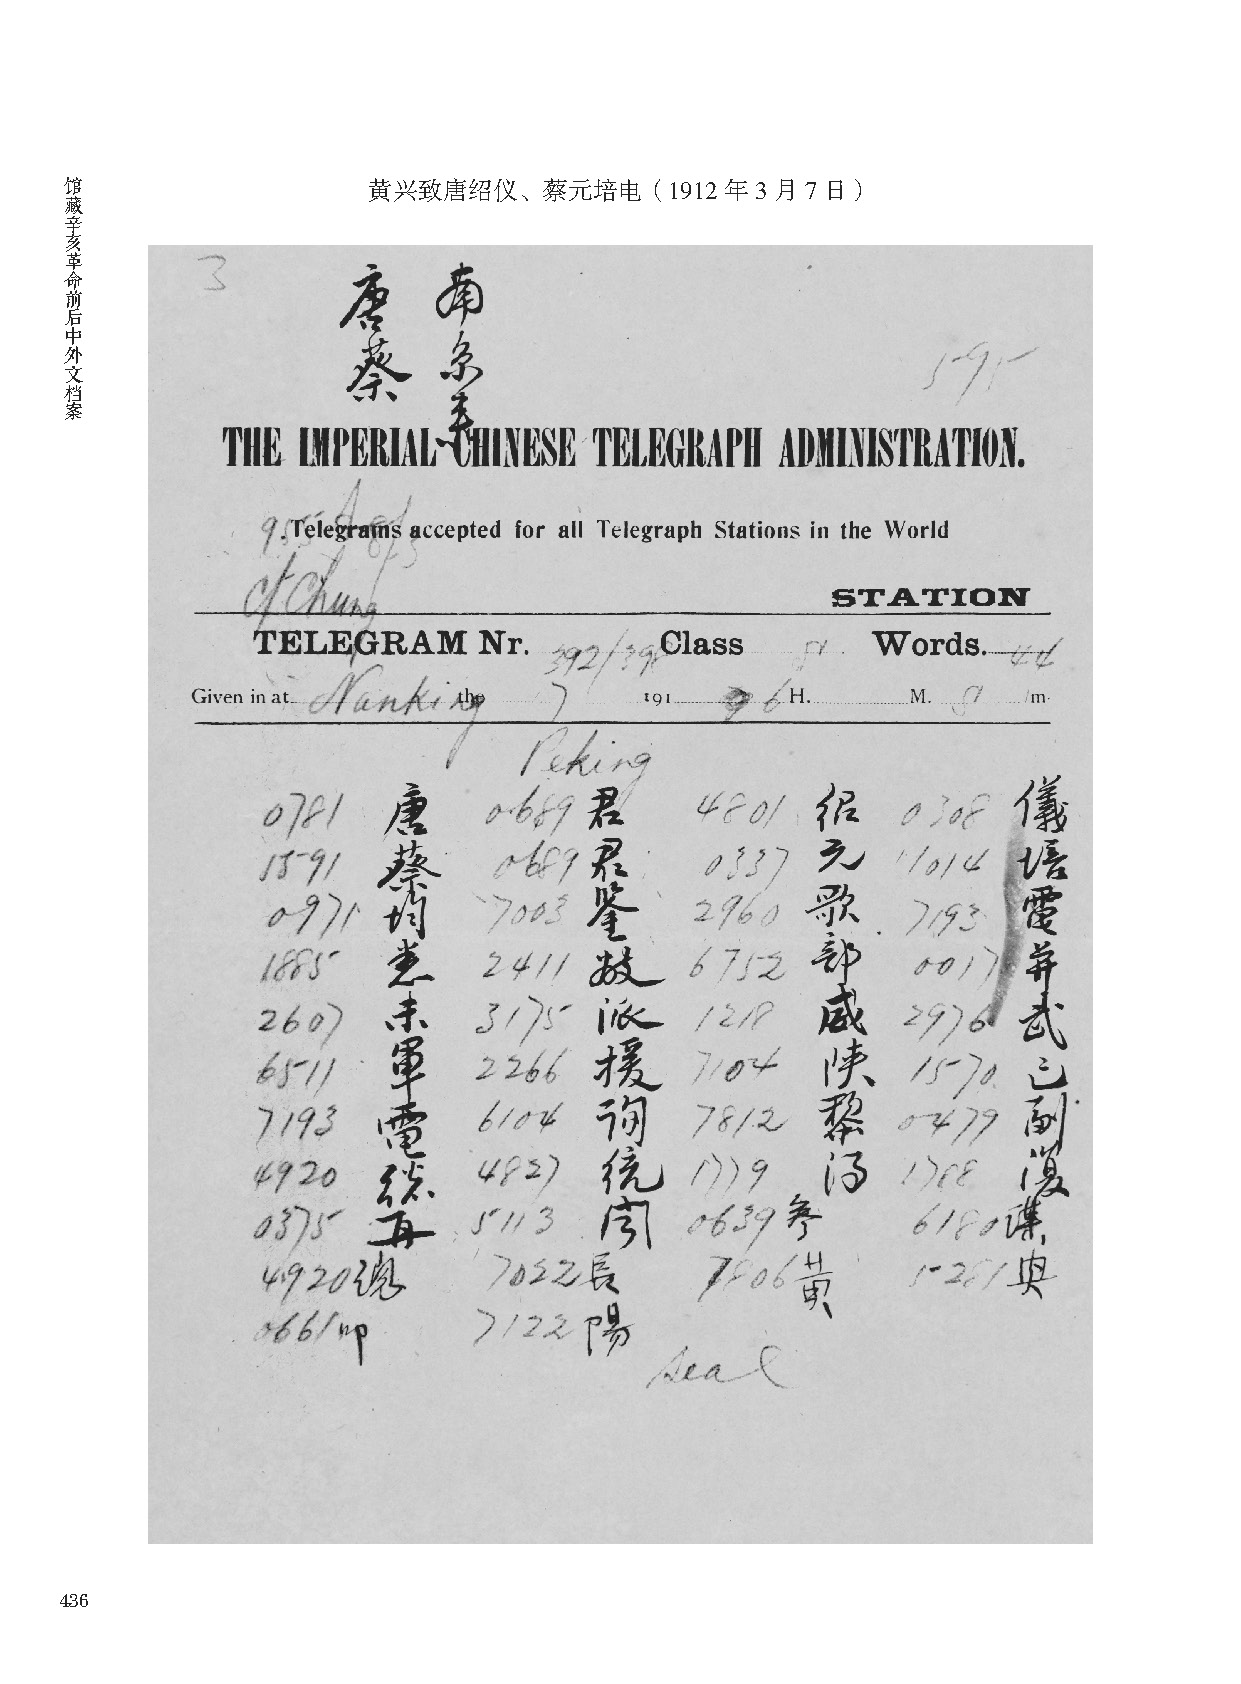 馆藏辛亥革命前后中外文档案
黄兴致唐绍仪、蔡元培电（1912 年 3 月 7 日）
3
南京来
唐蔡
595
THE IMPERIAL CHINESE TELEGRAPH ADMINISTRATION.
Telegrams accepted for all Telegraph Stations in the World
Cf Chung
STATION
TELEGRAM Nr. 392/398 Class Words. 44
Given in at Nanking the 7 191 H. M. m.
Peking
0781 唐 0689 君 4801 绍 0308 儀
1591 蔡 0689 君 0337 元 1014 培
0971 均 7003 鉴 2960 歌 7193 電
1885 悉 2411 敝 6752 部 0017 并
2607 未 3175 派 1218 威 2976 武
6511 軍 2266 援 7104 陕 1570 已
7193 電 6104 询 7812 黎 0479 副
4920 总 4827 统 1779 得 1788 復
0375 再 5113 闻 0639 参 6180 謀
4920 总 7022 長 7806 黄 5281 興
0661 叩 7122 陽
seal
436